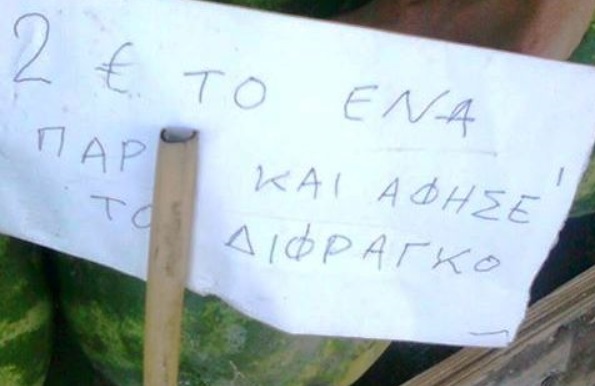 2 € ΤΟ ΕΝΑ
ΠΑΡ ΚΑΙ ΑΦΗΣΕ'
ΤΟ ΔΙΦΡΑΓΚΟ